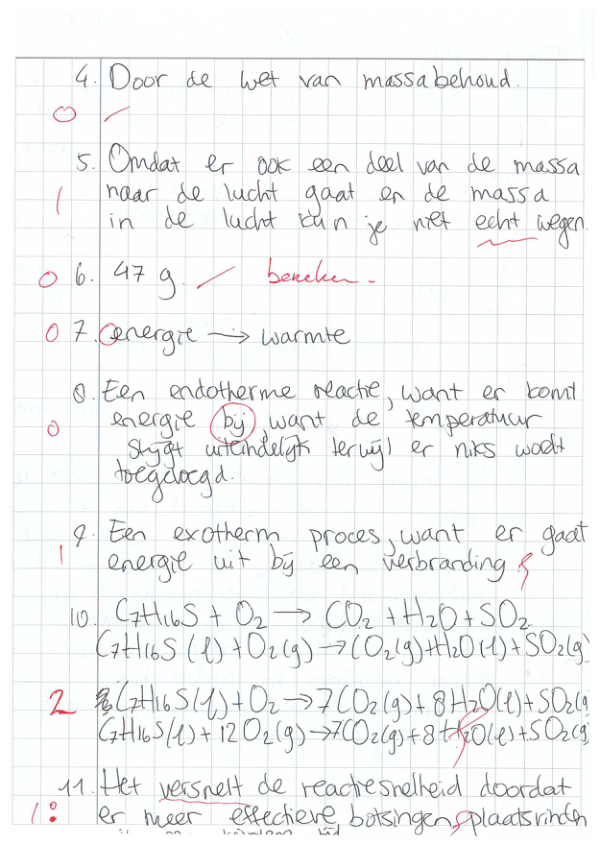 4. Door de wet van massabehoud.
0
5. Omdat er ook een deel van de massa
naar de lucht gaat en de massa
1 in de lucht kan je niet echt wegen.
0 6. 47 g.
0 7. energie → warmte
8. Een endotherme reactie, want er komt
0 energie bij, want de temperatuur
stijgt uiteindelijk terwijl er niks wordt
toegevoegd.
9. Een exotherm proces, want er gaat
1 energie uit bij een verbranding
10. C7H16S + O2 → CO2 + H2O + SO2
C7H16S (l) + O2 (g) → CO2 (g) + H2O (l) + SO2 (g)
2 C7H16S (l) + O2 → 7 CO2 (g) + 8 H2O (l) + SO2 (g
C7H16S (l) + 12 O2 (g) → 7 CO2 (g) + 8 H2O (l) + SO2 (g
11. Het versnelt de reactiesnelheid doordat
1 er meer effectieve botsingen plaatsvinden